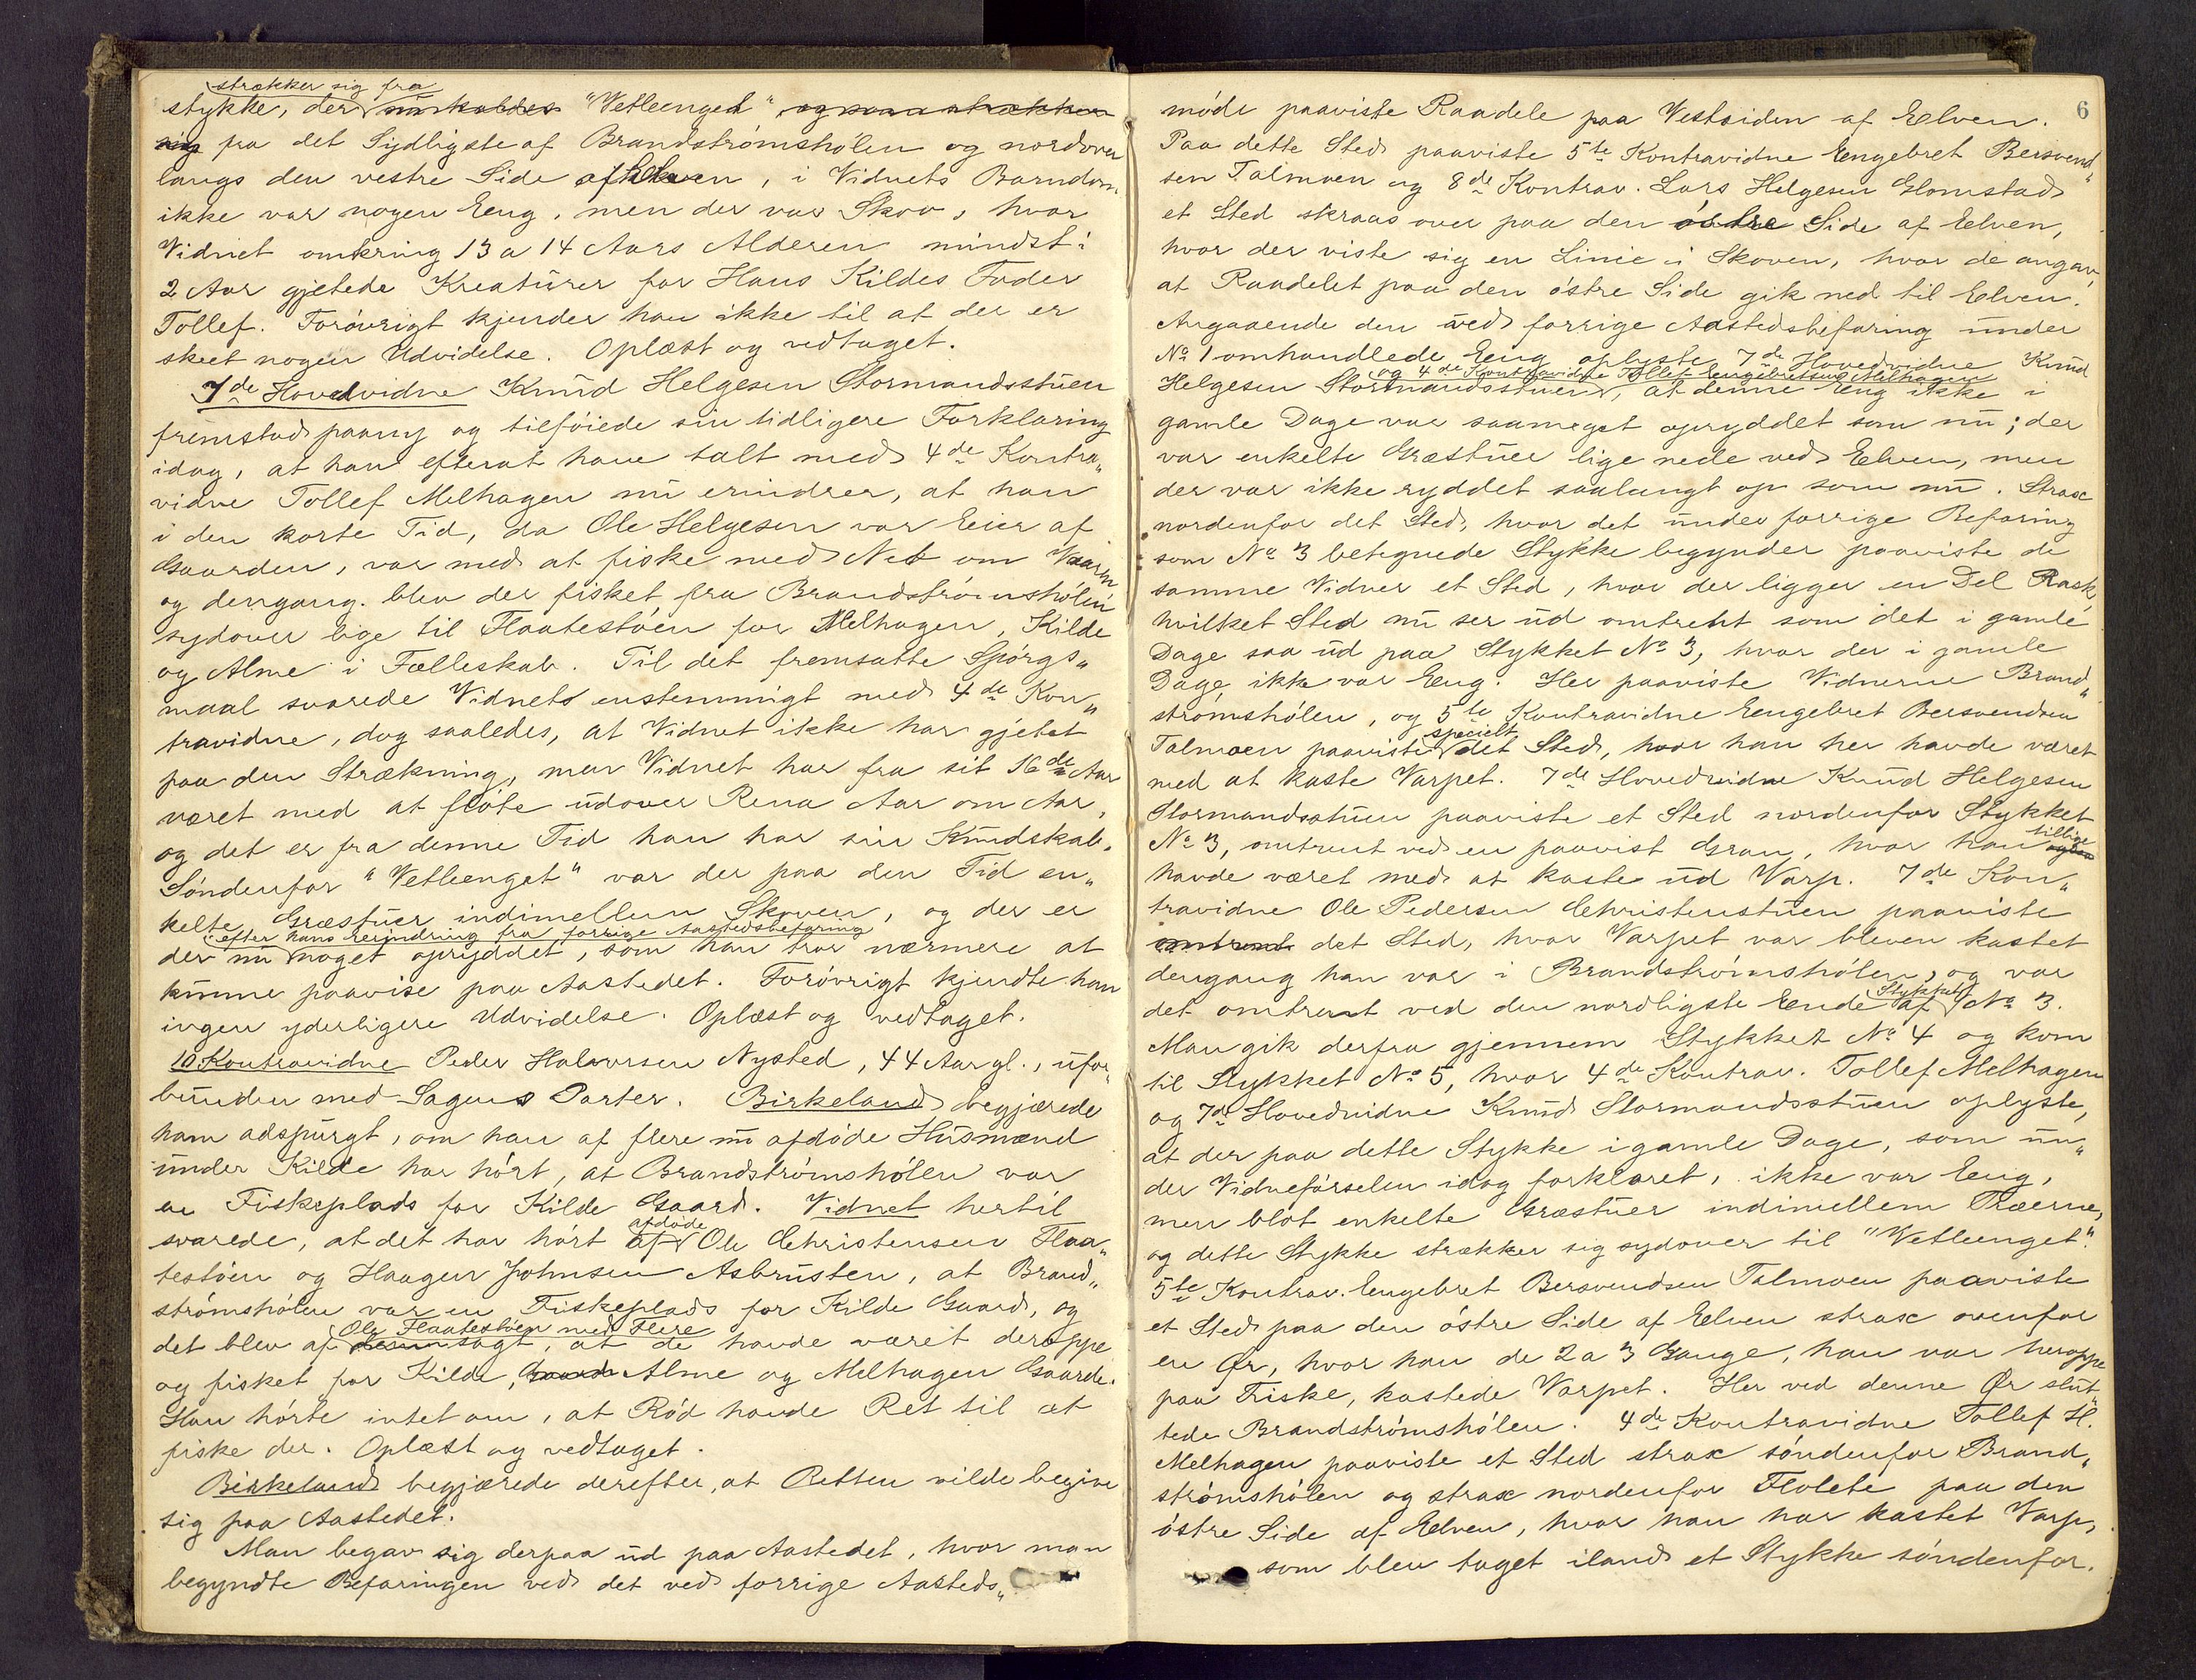 strækker sig fra
stykke, der nu kaldes "Vetleenget" og som strækker
sig fra det Sydligste af Brandströmshölen og nordover
langs den vestre Side af Elven, i Vidnets Barndom
ikke var nogen Eng, men der var Skov, hvor
Vidnet omkring 13 a 14 Aars Alderen mindst i
2 Aar gjetede Kreaturer for Hans Kildes Fader
Tollef. Forövrigt kjender han ikke til at der er
skeet nogen Udvidelse. Oplæst og vedtaget.
7de Hovedvidne Knud Helgesen Stormandsstuen
fremstod paany og tilföiede sin tidligere Forklaring
idag, at han efterat have talt med 4de Kontra„
vidne Tollef Melhagen nu erindrer, at han
i den korte Tid, da Ole Helgesen var Eier af
Gaarden, var med at fiske med Not om Vaaren
og dengang blev der fisket fra Brandströmshölen
sydover lige til Flaatestöen for Melhagen, Kilde
og Alme i Fælleskab. Til det fremsatte Spörgs„
maal svarede Vidnet enstemmigt med 4de Kon„
travidne, dog saaledes, at Vidnet ikke har gjetet
paa den Strækning, men Vidnet har fra sit 16de Aar
været med at flöte udover Rena Aar om Aar,
og det er fra denne Tid han har sin Kundskab.
Söndenfor "Vetleenget" var der paa den Tid en„
kelte Græstuer indimellem Skoven, og der er
efter hans erindring fra forrige Aastedsbefaring
der nu noget opryddet, som han tror nærmere at
kunne paavise paa Aastedet. Forövrigt kjendte han
ingen yderligere Udvidelse. Oplæst og vedtaget.
10 Kontravidne Peder Halvorsen Nysted, 44 Aar gl., ufor„
bunden med Sagens Parter. Birkeland begjærede
ham adspurgt, om han af flere nu afdöde Husmænd
under Kilde har hört, at Brandströmshölen var
en Fiskeplads for Kilde Gaard. Vidnet hertil
afdöde
svarede, at det har hört af Ole Christensen Flaa„
testöen og Haagen Johnsen Asbrusten, at Brand„
strömshölen var en Fiskeplads for Kilde Gaard, og
Ole Flaatestöen med Flere
det blev af dem sagt, at de havde været deroppe
og fisket for Kilde, Gaard Alme og Melhagen Gaarde.
Han hörte intet om, at Röd havde Ret til at
fiske der. Oplæst og vedtaget.
Birkeland begjærede derefter, at Retten vilde begive
sig paa Aastedet.
Man begav sig derpaa ud paa Aastedet, hvor man
begyndte Befaringen ved det ved forrige Aasteds„
6
möde paaviste Raadele paa Vestsiden af Elven.
Paa dette Sted paaviste 5te Kontravidne Engebret Bersvend„
sen Talmoen og 8de Kontrav. Lars Helgesen Glomstad
et Sted skraas over paa den östre Side af Elven,
hvor der viste sig en Linie i Skoven, hvor de angav,
at Raadelet paa den östre Side gik ned til Elven.
Angaaende den ved forrige Aastedsbefaring under
No 1 omhandlede Eng oplyste 7de Hovedvidne Knud
og 4de Kontravidne Tollef Engebretsen Melhagen
Helgesen Stormandsstuen, at denne Eng ikke i
gamle Dage var saameget opryddet som nu; der
var enkelte Græstuer lige nede ved Elven, men
der var ikke ryddet saalangt op som nu. Strax
nordenfor det Sted, hvor det under forrige Befaring
som No 3 betegnede Stykke begynder paaviste de
samme Vidner et Sted, hvor der ligger en Del Rask,
hvilket Sted nu ser ud omtrent som det i gamle
Dage saa ud paa Stykket No 3, hvor der i gamle
Dage ikke var Eng. Her paaviste Vidnerne Brand„
strömshölen, og 5te Kontravidne Engebret Bersvendsen
specielt
Talmoen paaviste det Sted, hvor han her havde været
med at kaste Varpet. 7de Hovedvidne Knud Helgesen
Stormandsstuen paaviste et Sted nordenfor Stykket
tillige
No 3, omtrent ved en paavist Gran, hvor han
havde været med at kaste ud Varp. 7de Kon„
travidne Ole Pedersen Christenstuen paaviste
omtrent det Sted, hvor Varpet var bleven kastet
dengang han var i Brandströmshölen, og var
Stykket
det omtrent ved den nordligste Ende af No 3.
Man gik derfra gjennem Stykket No 4 og kom
til Stykket No 5, hvor 4de Kontrav. Tollef Melhagen
og 7de Hovedvidne Knud Stormandsstuen oplyste,
at der paa dette Stykke i gamle Dage, som un„
der Vidneförselen idag forklaret, ikke var Eng,
men blot enkelte Græstuer indimellem Træerne,
og dette Stykke strækker sig sydover til "Vetleenget".
5te Kontrav. Engebret Bersvendsen Talmoen paaviste
et Sted paa den östre Side af Elven strax ovenfor
en Ør, hvor han de 2 a 3 Gange, han var heroppe
paa Fiske, kastede Varpet. Her ved denne Ør slut„
tede Brandströmshölen. 4de Kontravidne Tollef H.
Melhagen paaviste et Sted strax söndenfor Brand„
strömshölen og strax nordenfor Flolete paa den
östre Side af Elven, hvor han har kastet Varp,
som blev taget iland et Stykke söndenfor.